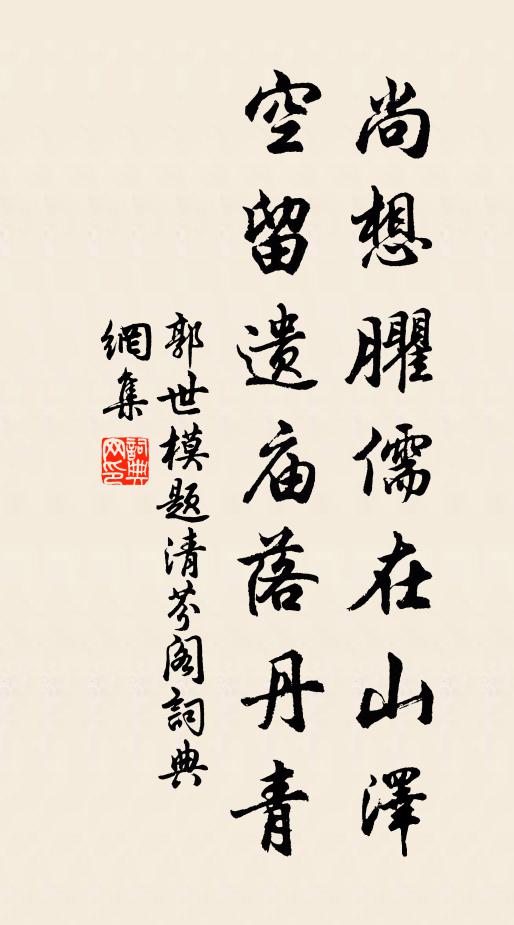 尚想臞儒在山澤
空留遗庙落丹青
郭世模题清芬阁詞典
網集
詞典
网印